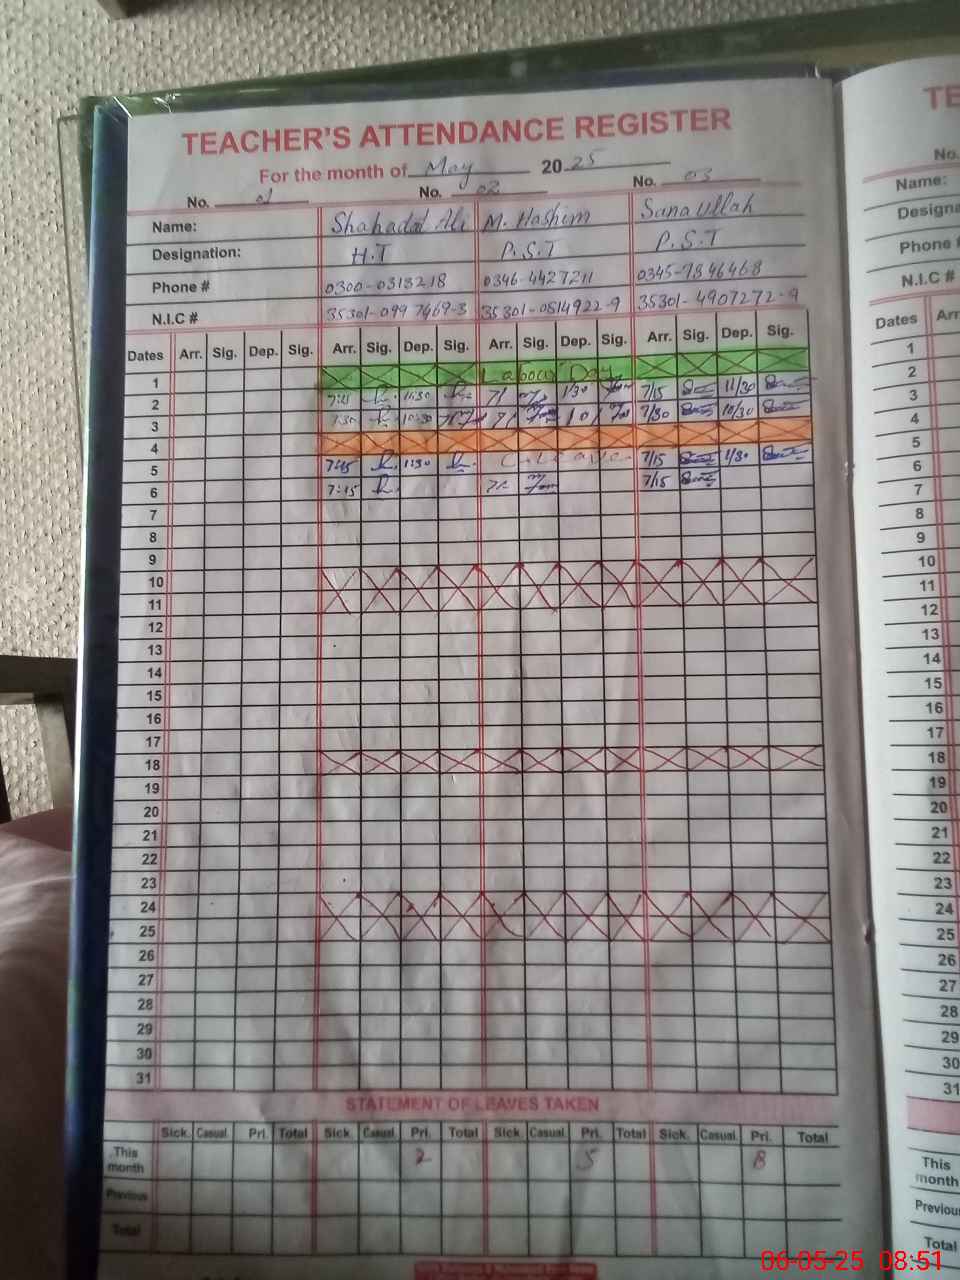 TEACHER'S ATTENDANCE REGISTER
For the month of May 2025
No. 01 No. 02 No. 03
Name: Shahadat Ali M. Hashim Sanaullah
Designation: H.T P.S.T P.S.T
Phone # 0300-0313218 0346-4427211 0345-7846468
N.I.C # 35301-0997469-3 35301-0514922-9 35301-4907272-9
Dates Arr. Sig. Dep. Sig. Arr. Sig. Dep. Sig. Arr. Sig. Dep. Sig. Arr. Sig. Dep. Sig.
1 Labour Day
2 11:30 7/ 1/30 7/15 11/30
3 7:30 10:30 7/ 7/30 10/30
4
5 7:15 1:30 C. Leave 7/15 1/30
6 7:15 7/15
7
8
9
10
11
12
13
14
15
16
17
18
19
20
21
22
23
24
25
26
27
28
29
30
31
STATEMENT OF LEAVES TAKEN
Sick. Casual. Pri. Total Sick. Casual. Pri. Total Sick. Casual. Pri. Total Sick. Casual. Pri. Total
This month 2 5 8
Previous
Total
TE
No.
Name:
Designa
Phone #
N.I.C #
Dates Arr
1
2
3
4
5
6
7
8
9
10
11
12
13
14
15
16
17
18
19
20
21
22
23
24
25
26
27
28
29
30
31
This month
Previou
Total
06-05-25 08:51